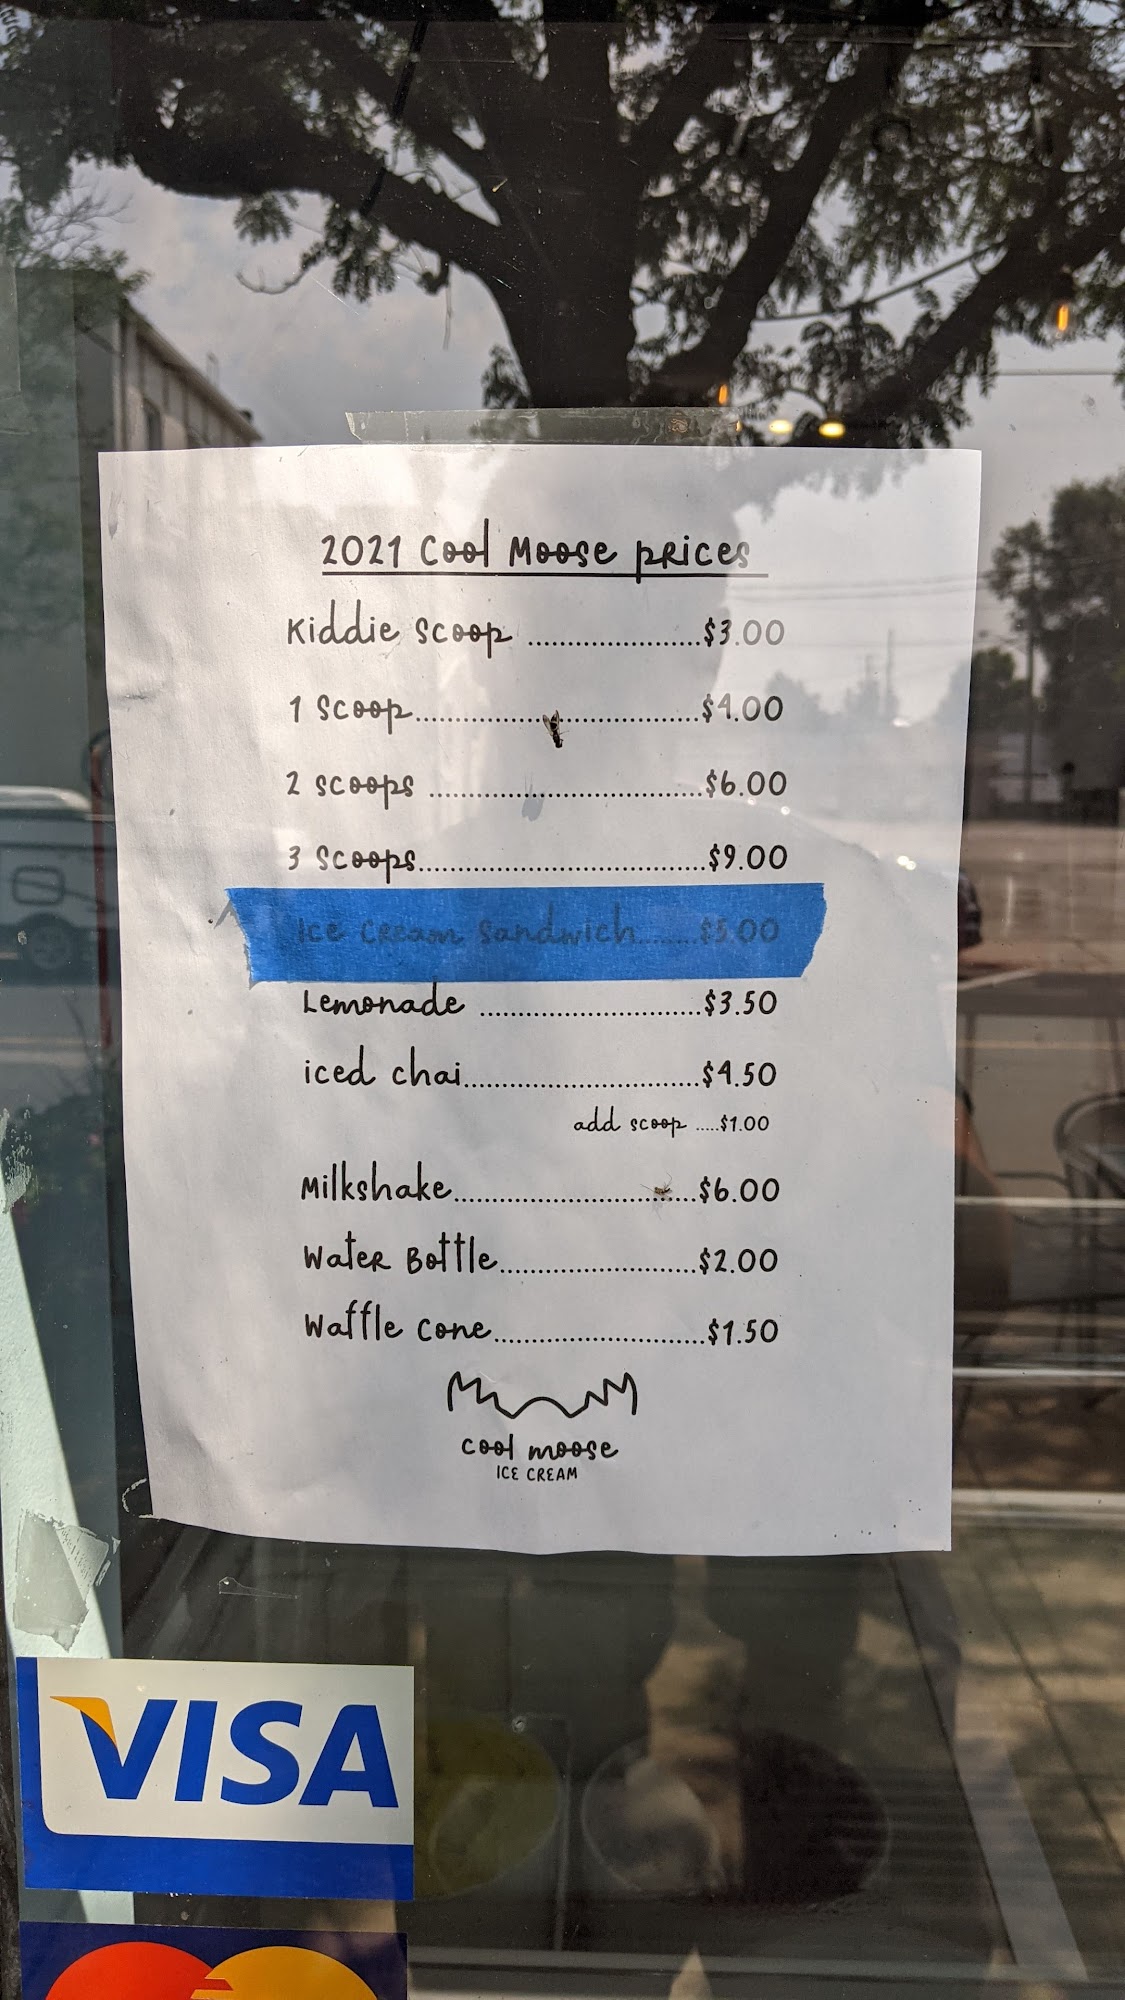 2021 Cool Moose prices
Kiddie Scoop ........................$3.00
1 Scoop.......................................$4.00
2 scoops .....................................$6.00
3 Scoops.......................................$9.00
Ice Cream Sandwich........$5.00
Lemonade ..............................$3.50
iced chai................................$4.50
add scoop .....$1.00
Milkshake.................................$6.00
Water Bottle...........................$2.00
Waffle Cone.............................$1.50
cool moose
ICE CREAM
VISA